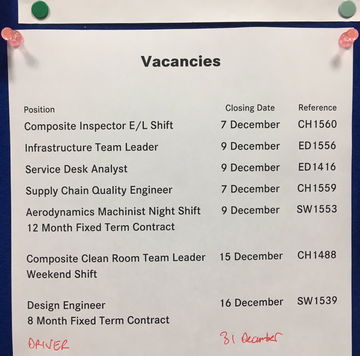 Vacancies
Position Closing Date Reference
Composite Inspector E/L Shift 7 December CH1560
Infrastructure Team Leader 9 December ED1556
Service Desk Analyst 9 December ED1416
Supply Chain Quality Engineer 7 December CH1559
Aerodynamics Machinist Night Shift 9 December SW1553
12 Month Fixed Term Contract
Composite Clean Room Team Leader 15 December CH1488
Weekend Shift
Design Engineer 16 December SW1539
8 Month Fixed Term Contract
DRIVER 31 December